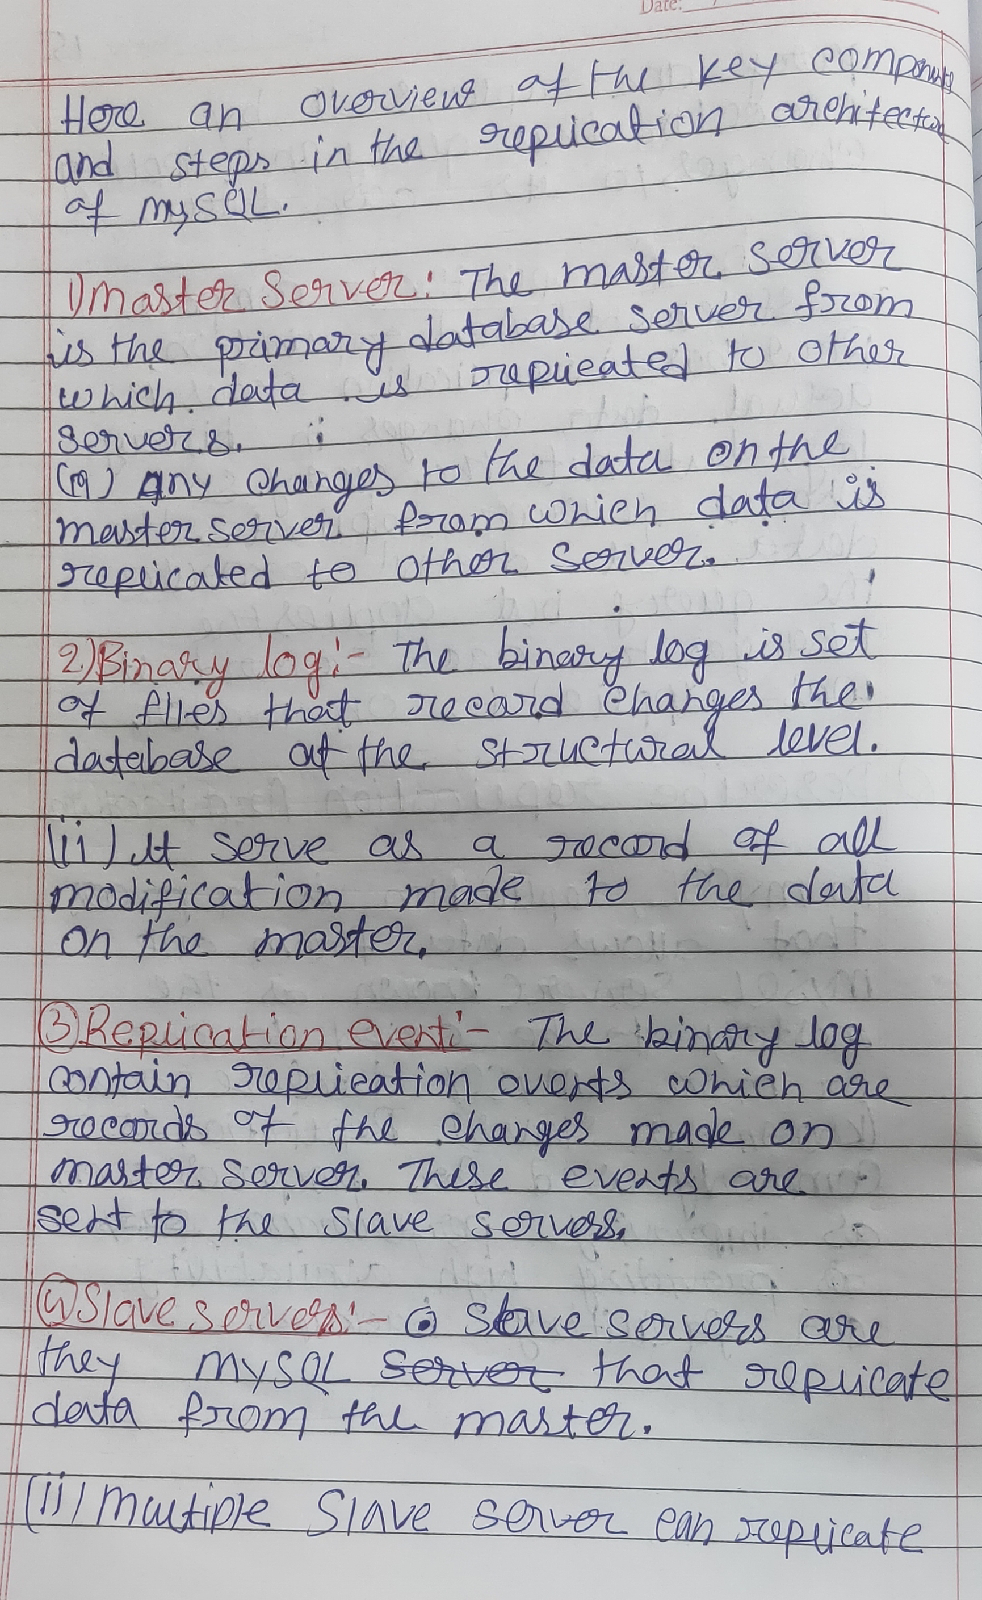 Date:
Here an overview of the key components
and steps in the replication architectur
of mySQL.
1) Master Server: The master server
is the primary database server from
which data is replicated to other
servers.
(a) any changes to the data on the
master server from which data is
replicated to other server.
2) Binary log:- The binary log is set
of files that record changes the
database at the structural level.
(ii) It serve as a record of all
modification made to the data
on the master.
③ Replication event:- The binary log
contain replication events which are
records of the changes made on
master server. These events are
sent to the slave servers.
④ Slave servers:- ⓘ Slave servers are
they mySQL server that replicate
data from the master.
(ii) Multiple Slave server can replicate